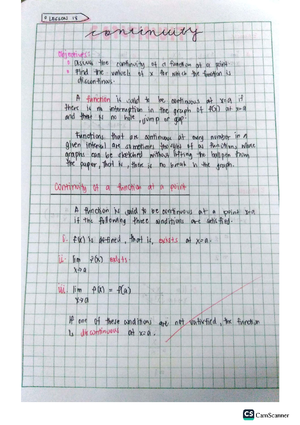 LESSON 13
continuity
Objectives:
discuss the continuity of a function at a point
Find the values of x for which the function is
discontinuous.
A function is said to be continuous at x=a if
there is no interruption in the graph of f(x) at x=a
and that is no hole, jump or gap.
Functions that are continuous at every number in a
given interval are sometimes thought of as functions whose
graphs can be sketched without lifting the ballpen from
the paper, that is, there is no break in the graph.
Continuity of a function at a point
A function is said to be continuous at a point x=a
if the following three conditions are satisfied.
i. f(x) is defined, that is, exists at x=a.
ii. lim f(x) exists
x→a
iii. lim f(x) = f(a)
x→a
If one of these conditions are not satisfied, the function
is discontinuous at x=a.
CS CamScanner